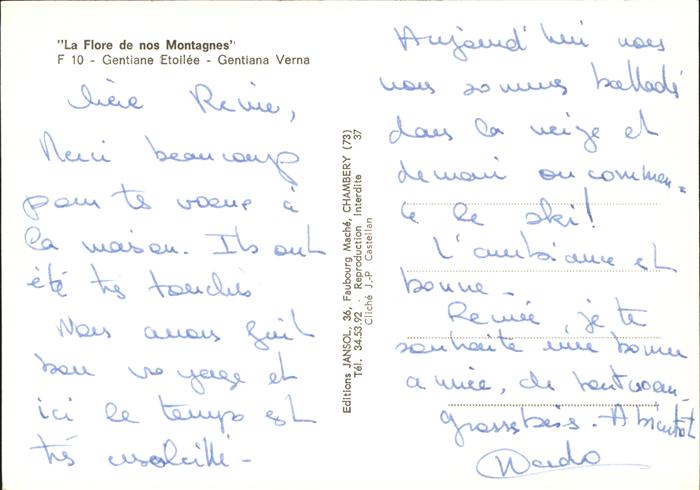 "La Flore de nos Montagnes"
F 10 - Gentiane Etoilée - Gentiana Verna
Chère Renée,
Merci beaucoup
pour tes voeux à
la maison. Ils ont
été très touchés
Nous avons fait
bon voyage et
ici le temps est
très ensoleillé -
Editions JANSOL, 36, Faubourg Maché, CHAMBERY (73)
Tél. 34.53.92 - Reproduction Interdite 37
Cliché J.-P. Castellan
Aujourd'hui nous
nous sommes balladés
dans la neige et
demain on commen=
ce le ski!
L'ambiance est
bonne -
Renée, je te
souhaite une bonne
année, de tout coeur,
Grosses bises. A bientôt